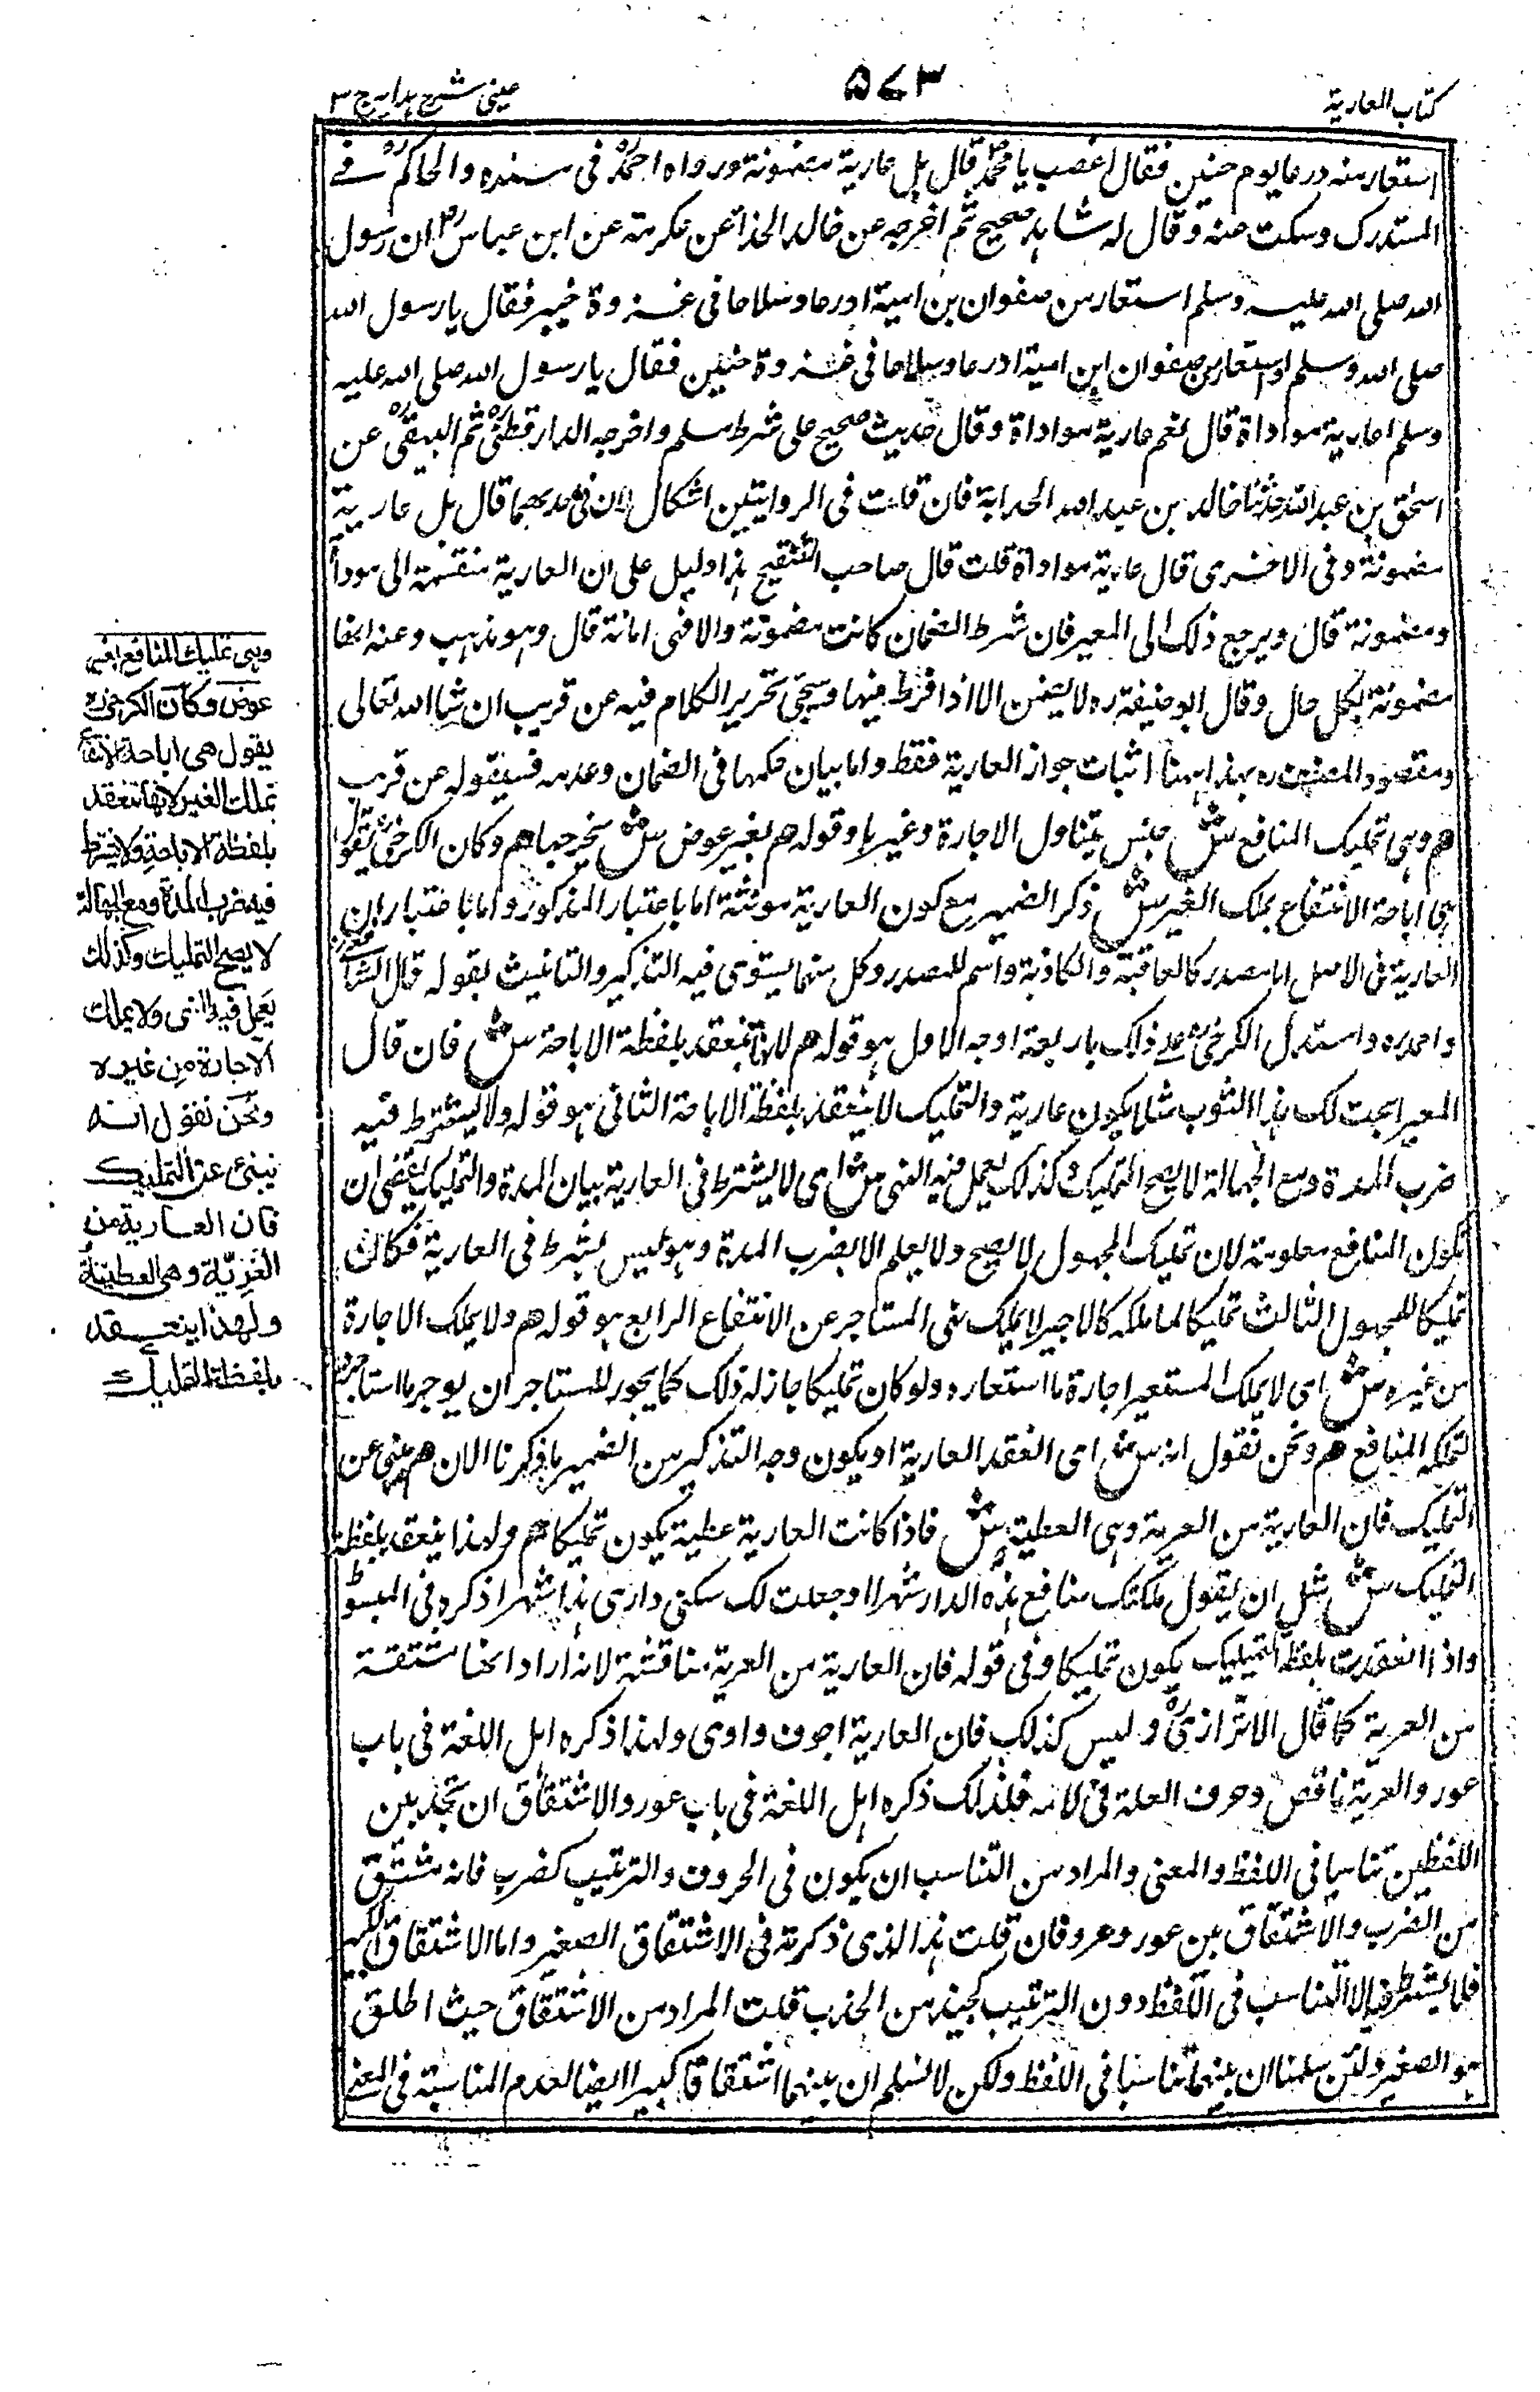 كتاب العارية
٥٧٣
عینی شرح ہدایہ ج ٣
استعار منه درعا يوم حنين فقال اغصب يا محمد قال بل عارية مضمونة ورواه احمدؒ فى مسنده والحاكمؒ فے
المستدرك وسكت عنه وقال له شاہد صحيح ثم اخرجه عن خالد الحذاء عن عكرمة عن ابن عباسؓ ان رسول
الله صلى الله عليه وسلم استعار من صفوان بن امية ادرعا وسلاحا فى غزوة خيبر فقال يا رسول الله
صلى الله وسلم استعار من صفوان ابن امية ادرعا وسلاحا فى غزوة حنين فقال يا رسول الله صلى الله عليه
وسلم اعارية موداة قال نعم عارية موداة وقال حديث صحيح على شرط مسلم واخرجه الدارقطنىؒ ثم البيهقىؒ عن
اسحٰق بن عبد الله حدثنا خالد بن عبد الله الحدابة فان قلت فى الروايتين اشكال لان فى احدٰيهما قال بل عارية
مضمونة وفى الاخرى قال عارية موداة قلت قال صاحب التنقيح ہذا دليل على ان العارية منقسمة الى موداة
ومضمونة قال ويرجع ذلك الى المعير فان شرط الضمان كانت مضمونة والا فہى امانة قال وہو مذہب وعنه انہا
مضمونة بكل حال وقال ابو حنيفة رہ لا يضمن الا اذا فرط فيہا وسيجئ تحرير الكلام فيه عن قريب ان شاء الله تعالى
ومقصود المصنف رہ بہذا ہہنا اثبات جواز العارية فقط واما بيان حكمہا فى الضمان وعدمہ فسيقوله عن قريب
هم وہى تمليك المنافع ش جنس يتناول الاجارة وغيرہا وقوله هم بغير عوض ش يخرجہا هم وكان الكرخىؒ يقول
ہى اباحة الانتفاع بملك الغير ش ذكر الضمير مع كون العارية مونثة اما باعتبار المذكور واما باعتبار ان
العارية فى الاصل اما مصدر كالعاقبة والكاذبة واسم للمصدر وكل منہما يستوى فيه التذكير والتانيث بقوله قال الشافعىؒ
واحمد رہ واستدل الكرخىؒ على ذلك باربعة اوجه الاول ہو قوله هم لانہا تنعقد بلفظة الاباحة ش فان قال
المعير ابحت لك ہذا الثوب مثلا يكون عارية والتمليك لا ينعقد بلفظة الاباحة الثانى ہو قوله ولا يشترط فيه
ضرب المدة ومع الجہالة لا يصح التمليك وكذلك يعمل فيه النہى ش اى لا يشترط فى العارية بيان المدة والتمليك يقتضى ان
تكون المنافع معلومة لان تمليك المجہول لا يصح ولا يعلم الا بضرب المدة وہو ليس بشرط فى العارية فكانت
تمليكا للمجہول الثالث تمليكا لما ملكه كالاجير لا يملك نہى المستاجر عن الانتفاع الرابع ہو قوله هم ولا يملك الاجارة
من غيره ش اى لا يملك المستعير اجارة ما استعاره ولو كان تمليكا جاز له ذلك كما يجوز للمستاجر ان يوجر ما استاجره
لتملكه المنافع هم ونحن نقول انه ش اى العقد العارية او يكون وجه التذكير من الضمير ما ذكرنا الان هم ينبئ عن
التمليك فان العارية من العرية وہى العطية ش فاذا كانت العارية عطية يكون تمليكا هم ولہذا ينعقد بلفظة
التمليك ش مثل ان يقول ملكتك منافع ہذه الدار شہرا او جعلت لك سكنى دارى ہذا شہرا ذكره فى المبسوط
واذا انعقدت بلفظ التمليك يكون تمليكا وفى قوله فان العارية من العرية مناقشة لانه اراد انہا مشتقة
من العرية كما قال الاترازىؒ وليس كذلك فان العارية اجوف واوى ولہذا ذكره اہل اللغة فى باب
عور والعرية ناقص وحرف العلة فى لامه فلذلك ذكره اہل اللغة فى باب عور والاشتقاق ان تجد بين
اللفظين تناسبا فى اللفظ والمعنى والمراد من التناسب ان يكون فى الحروف والترتيب كضرب فانه مشتق
من الضرب والاشتقاق بين عور وعرو فان قلت ہذا الذى ذكرته فى الاشتقاق الصغير واما الاشتقاق الكبير
فلا يشترط فيه الا التناسب فى اللفظ دون الترتيب كجبذ من الجذب قلت المراد من الاشتقاق حيث اطلق
ہو الصغير ولئن سلمنا ان بينہما تناسبا فى اللفظ ولكن لا نسلم ان بينہما اشتقاقا كبيرا ايضا لعدم المناسبة فى المعنے
وہی تمليك المنافع بغير
عوض وكان الكرخىؒ
يقول هى اباحة الانتفاع
بملك الغير لانها تنعقد
بلفظة الاباحة ولا يشترط
فيه ضرب المدة ومع الجهالة
لا يصح التمليك وكذلك
يعمل فيه النهى ولا يملك
الاجارة من غيره
ونحن نقول انه
ينبئ عن التمليك
فان العارية من
العرية وهى العطية
ولهذا ينعقد
بلفظة التمليك